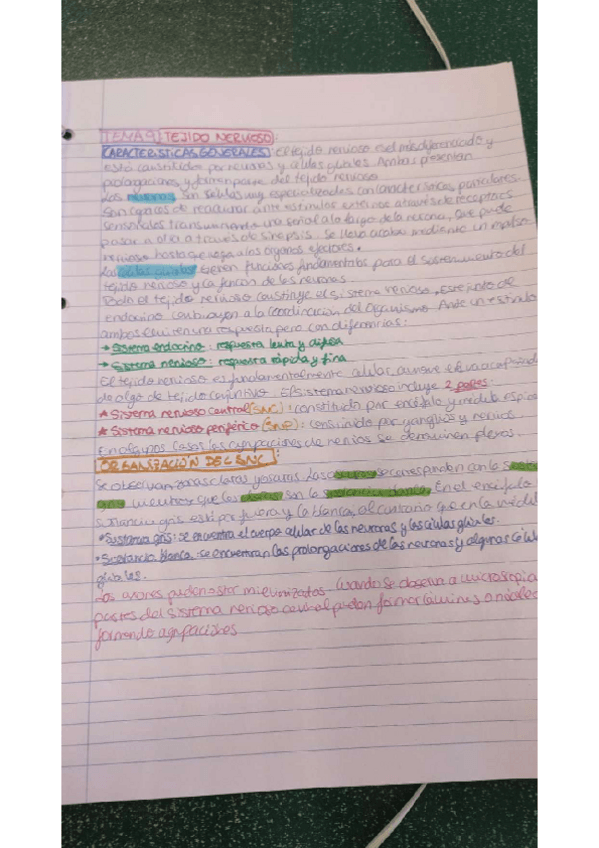 TEMA 9 TEJIDO NERVIOSO:
CARACTERISTICAS GENERALES: El tejido nervioso es el más diferenciado y
está constituidos por neuronas y células gliales. Ambas presentan
prolongaciones y forman parte del tejido nervioso.
Las neuronas son células muy especializadas con características particulares.
Son capaces de reaccionar ante estímulos externos a través de receptores
sensoriales transmitiendo una señal a lo largo de la neurona, que puede
pasar a otra a través de sinapsis. Se lleva a cabo mediante un impulso
nervioso hasta que llega a los órganos efectores.
Las células gliales tienen funciones fundamentales para el sostenimiento del
tejido nervioso y la función de las neuronas.
Todo el tejido nervioso constituye el sistema nervioso. Este junto de
endocrino contribuyen a la coordinación del organismo. Ante un estímulo
ambos emiten una respuesta pero con diferencias:
→ Sistema endocrino: respuesta lenta y difusa
→ Sistema nervioso: respuesta rápida y fina
El tejido nervioso es fundamentalmente celular, aunque
de algo de tejido conjuntivo. El sistema nervioso incluye 2 partes:
★ Sistema nervioso central (SNC): constituido por encéfalo y médula
★ Sistema nervioso periférico (SNP): constituido por ganglios y nervios.
En algunos casos las agrupaciones de nervios se denominen plexos.
ORGANIZACIÓN DEL SNC:
Se observan zonas claras y oscuras. Las se corresponden con la
gris mientras que las claras son la sustancia blanca. En el encéfalo
sustancia gris está por fuera y la blanca, al contrario que en la
• Sustancia gris: se encuentra el cuerpo celular de las neuronas y las células gliales.
• Sustancia blanca: se encuentran las prolongaciones de las neuronas y algunas
gliales.
Los axones pueden estar mielinizados. Cuando se observa a microscopia
partes del sistema nervioso central pueden formar láminas o
formando agrupaciones